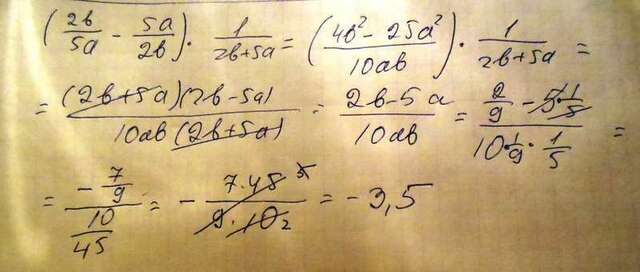 (2b/5a - 5a/2b) · 1/2b+5a = (4b² - 25a²/10ab) · 1/2b+5a =
= (2b+5a)(2b-5a)/10ab(2b+5a) = 2b-5a/10ab = 2/9 - 5·1/5/10·1/9·1/5 =
= -7/9/10/45 = - 7·45 5/9·10 2 = -3,5